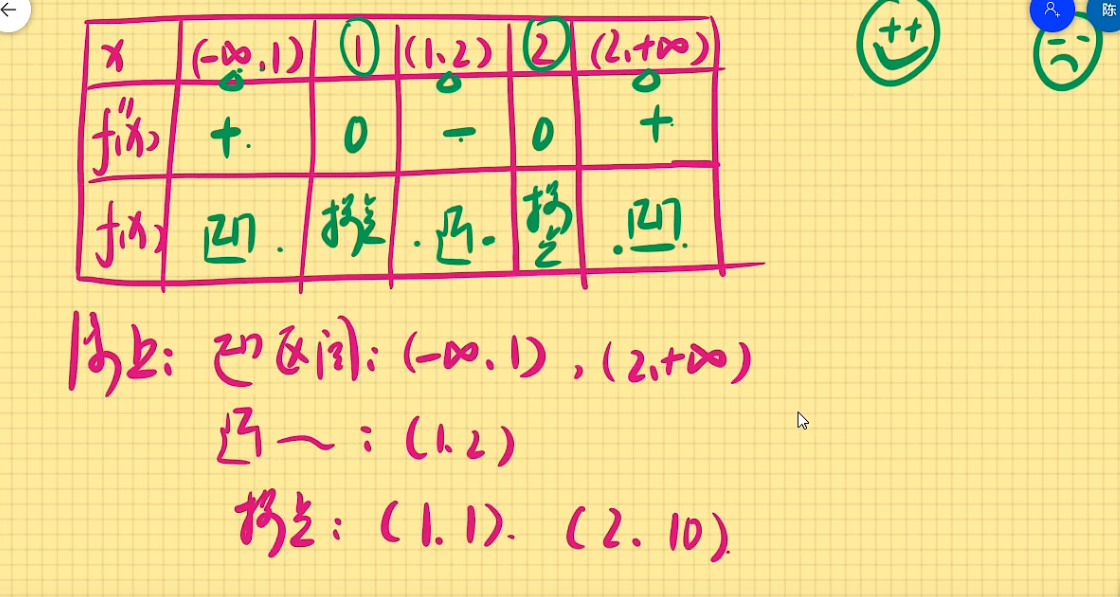 陈
++
x (-∞.1) 1 (1.2) 2 (2,+∞)
f''(x) + 0 - 0 +
f(x) 凹 拐点 凸 拐点 凹
综上: 凹区间: (-∞.1), (2,+∞)
凸~: (1.2)
拐点: (1.1). (2.10).